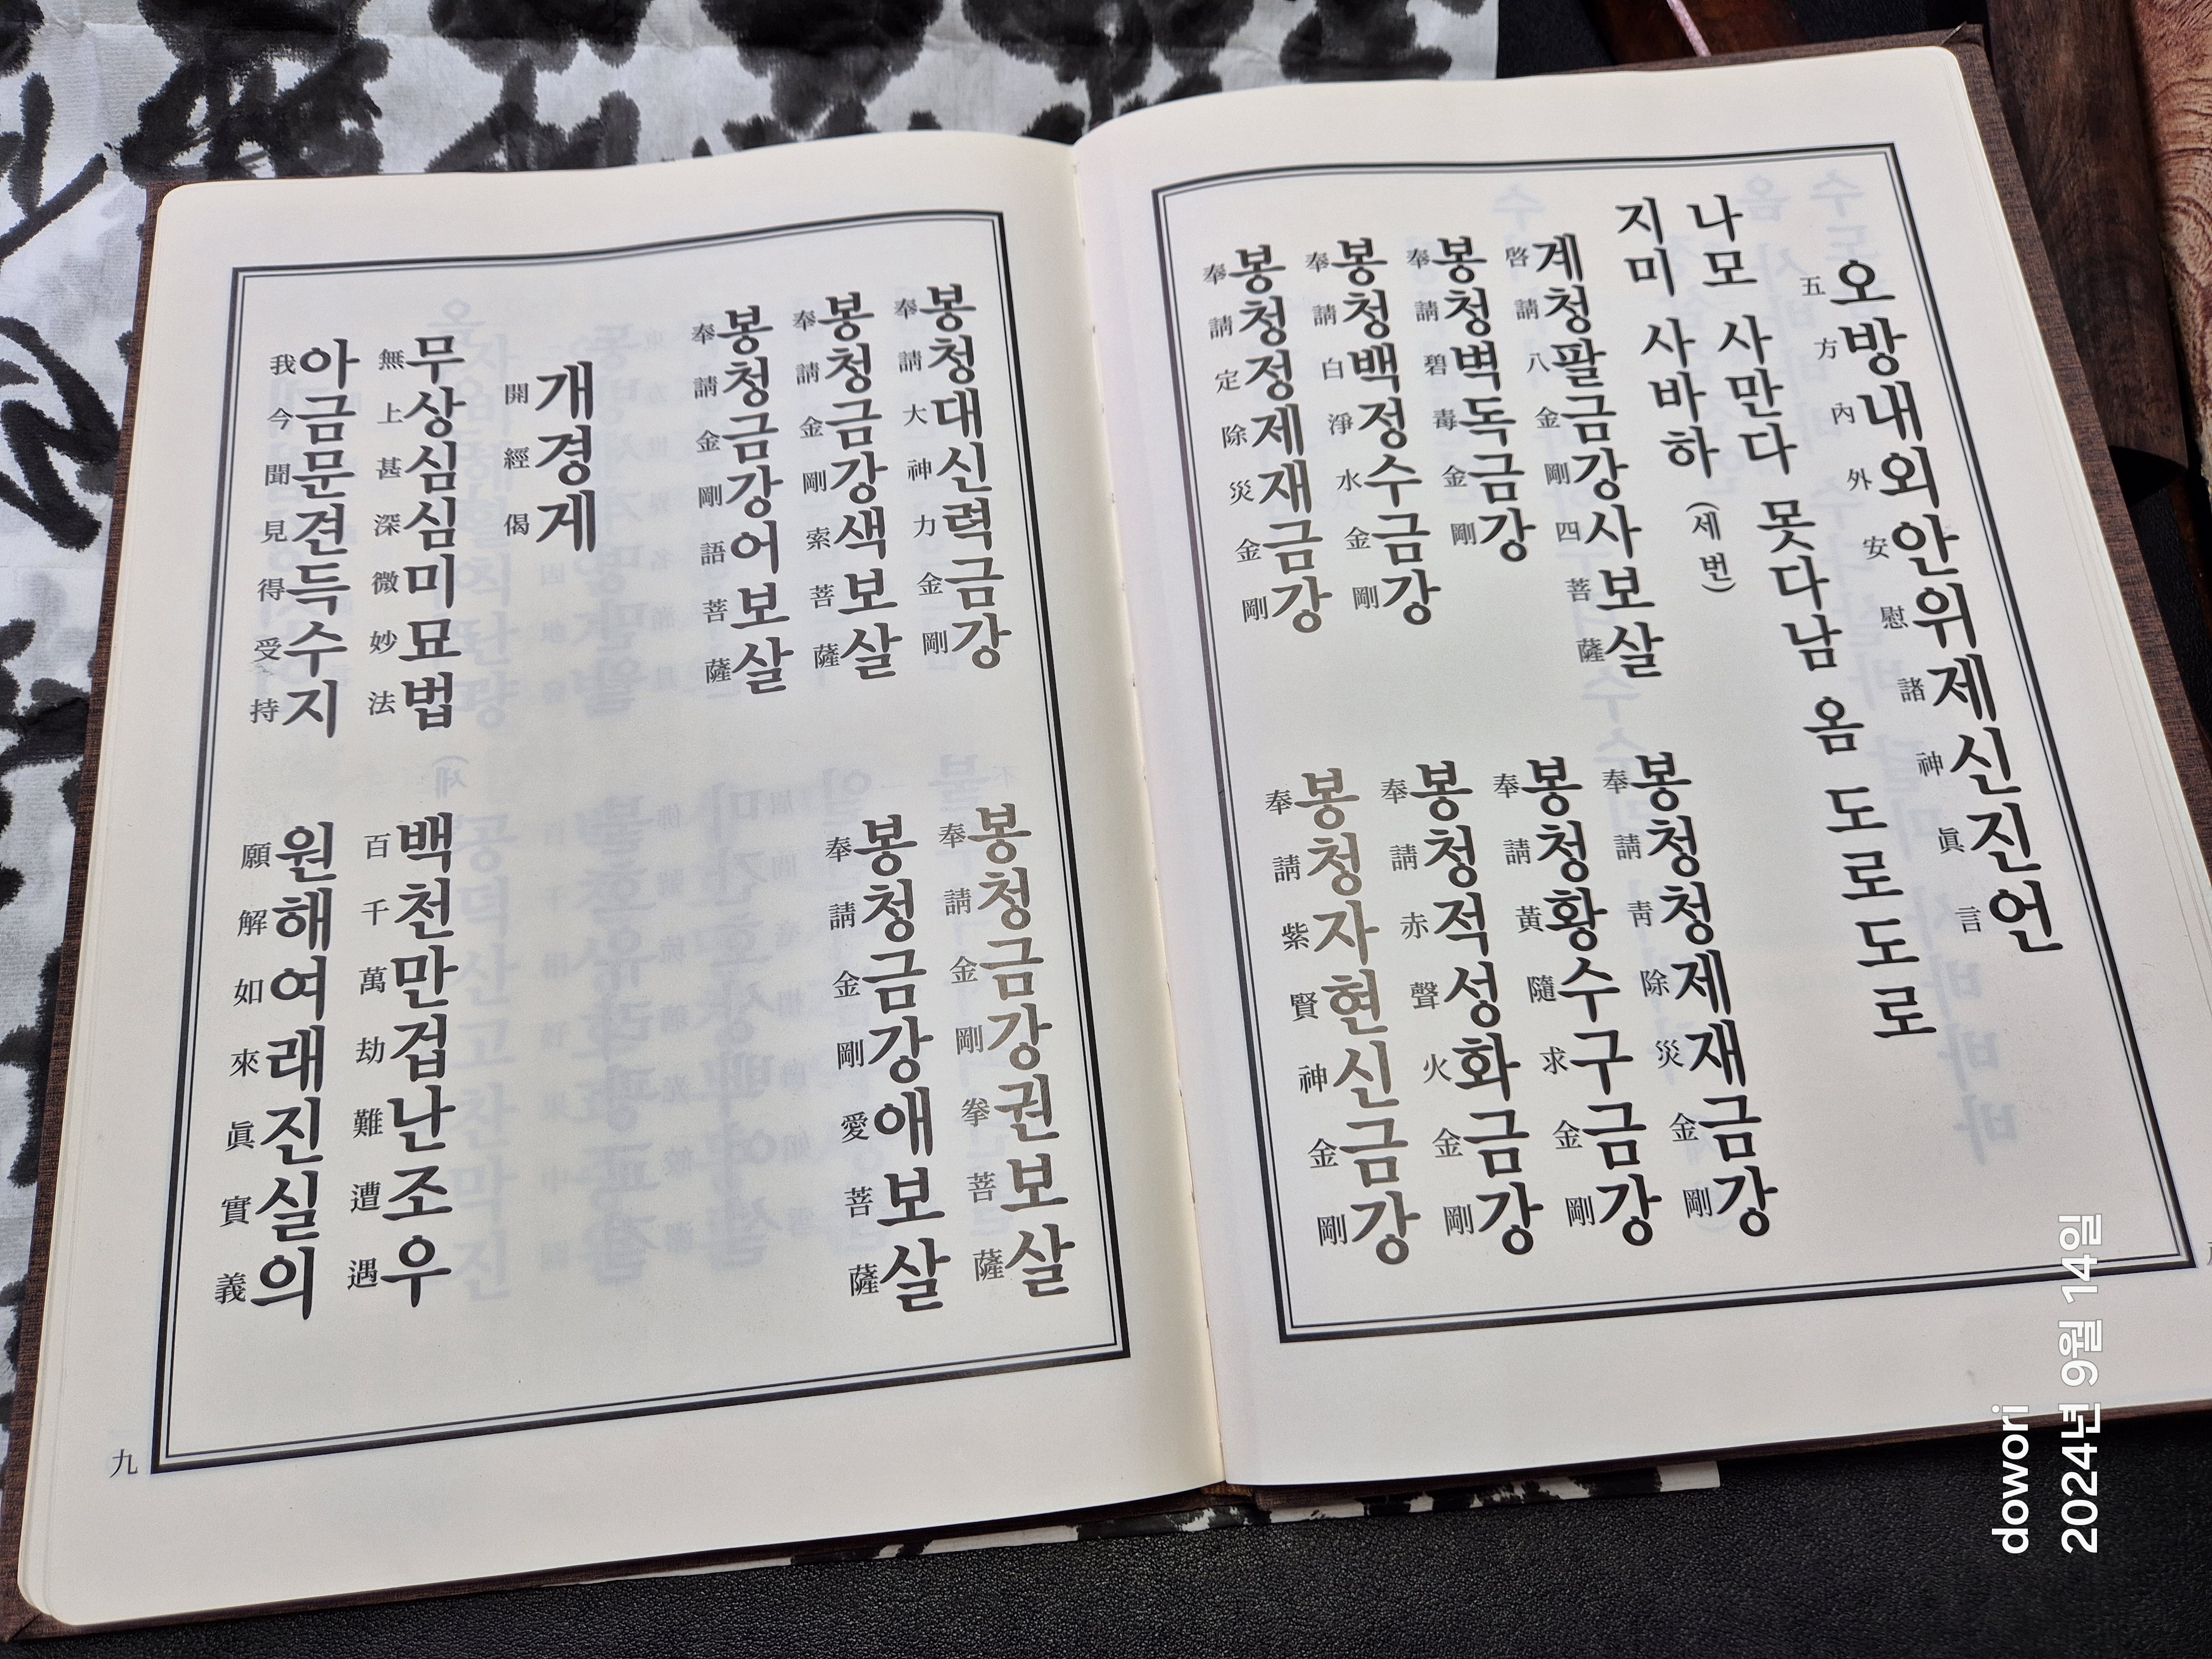 오방내외안위제신진언
五方內外安慰諸神眞言
나모 사만다 못다남 옴 도로도로
지미 사바하 (세 번)
계청팔금강사보살
啓請八金剛四菩薩
봉청청제재금강
奉請靑除災金剛
봉청벽독금강
奉請碧毒金剛
봉청황수구금강
奉請黃隨求金剛
봉청백정수금강
奉請白淨水金剛
봉청적성화금강
奉請赤聲火金剛
봉청정제재금강
奉請定除災金剛
봉청자현신금강
奉請紫賢神金剛
봉청대신력금강
奉請大神力金剛
봉청금강권보살
奉請金剛拳菩薩
봉청금강색보살
奉請金剛索菩薩
봉청금강애보살
奉請金剛愛菩薩
봉청금강어보살
奉請金剛語菩薩
개경게
開經偈
무상심심미묘법
無上甚深微妙法
백천만겁난조우
百千萬劫難遭遇
아금문견득수지
我今聞見得受持
원해여래진실의
願解如來眞實義
九
dowori
2024년 9월 14일